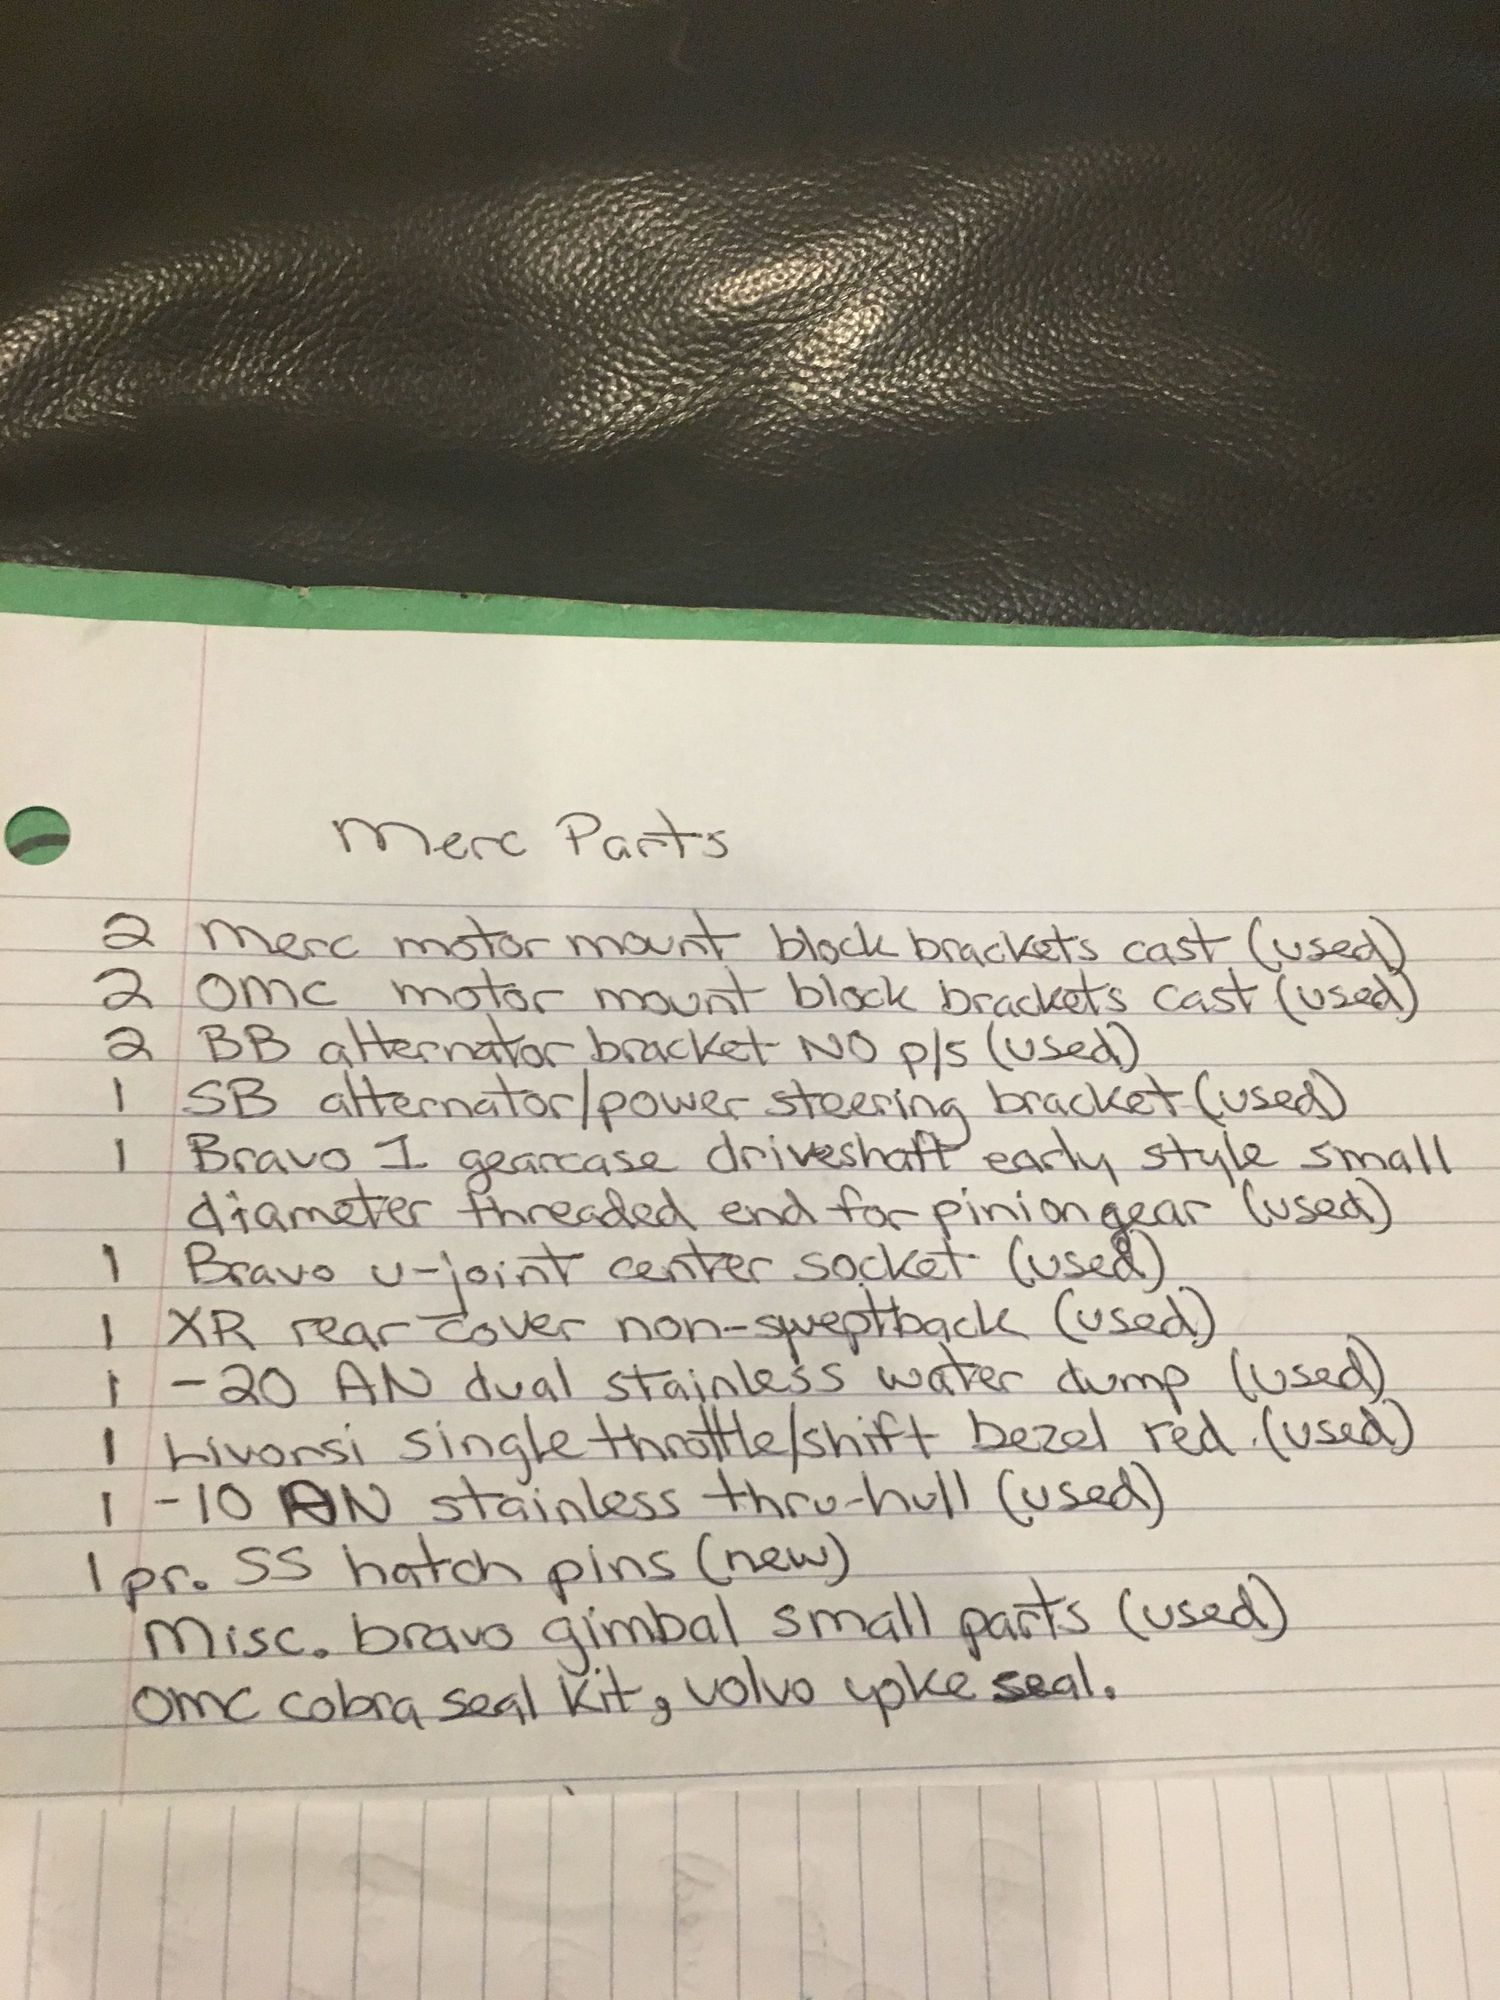 Merc Parts
2 Merc motor mount block brackets cast (used)
2 OMC motor mount block brackets cast (used)
2 BB alternator bracket NO p/s (used)
1 SB alternator/power steering bracket (used)
1 Bravo I gearcase driveshaft early style small
diameter threaded end for pinion gear (used)
1 Bravo u-joint center socket (used)
1 XR rear cover non-sweptback (used)
1 -20 AN dual stainless water dump (used)
1 Livorsi single throttle/shift bezel red. (used)
1 -10 AN stainless thru-hull (used)
1 pr. SS hatch pins (new)
Misc. bravo gimbal small parts (used)
OMC cobra seal kit, volvo yoke seal.